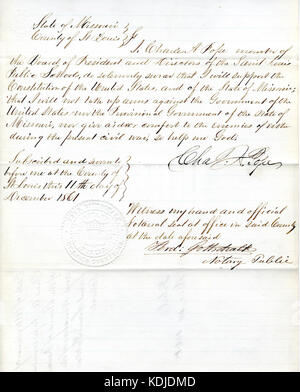 State of Missouri
County of St Louis
I, Charles A Pope member of
the Board of President and Directors of the Saint Louis
Public Schools, do solemnly swear that I will support the
Constitution of the United States, and of the State of Missouri;
that I will not take up arms against the Government of the
United States, nor the Provisional Government of the State of
Missouri, nor give aid or comfort to the enemies of either
during the present civil war; so help me God.
Chas. A. Pope
Subscribed and sworn to
before me at the County of
St Louis this 11th day of
December 1861
Witness my hand and official
Notarial Seal at office in said County
at the date aforesaid
Notary Public
alamy
Image ID: KDJDMD
www.alamy.com